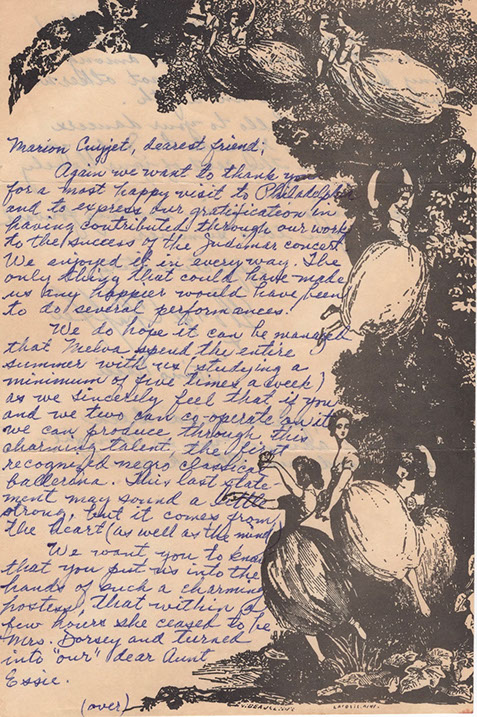 Marion Cuyjet, dearest friend;
Again we want to thank you
for a most happy visit to Philadelphia
and to express our gratification in
having contributed through our work
to the success of the Judimar concert.
We enjoyed it in every way. The
only thing that could have made
us any happier would have been
to do several performances!
We do hope it can be managed
that Melva spend the entire
summer with us (studying a
minimum of five times a week)
as we sincerely feel that if you
and we two can co-operate on it
we can produce through this
charming talent the first
recognized negro classical
ballerina. This last state
ment may sound a little
strong, but it comes from
the heart (as well as the mind)
We want you to know
that you put us into the
hands of such a charming
hostess, that within a
few hours she ceased to be
Mrs. Dorsey and turned
into "our" dear Aunt
Essie.
(over)